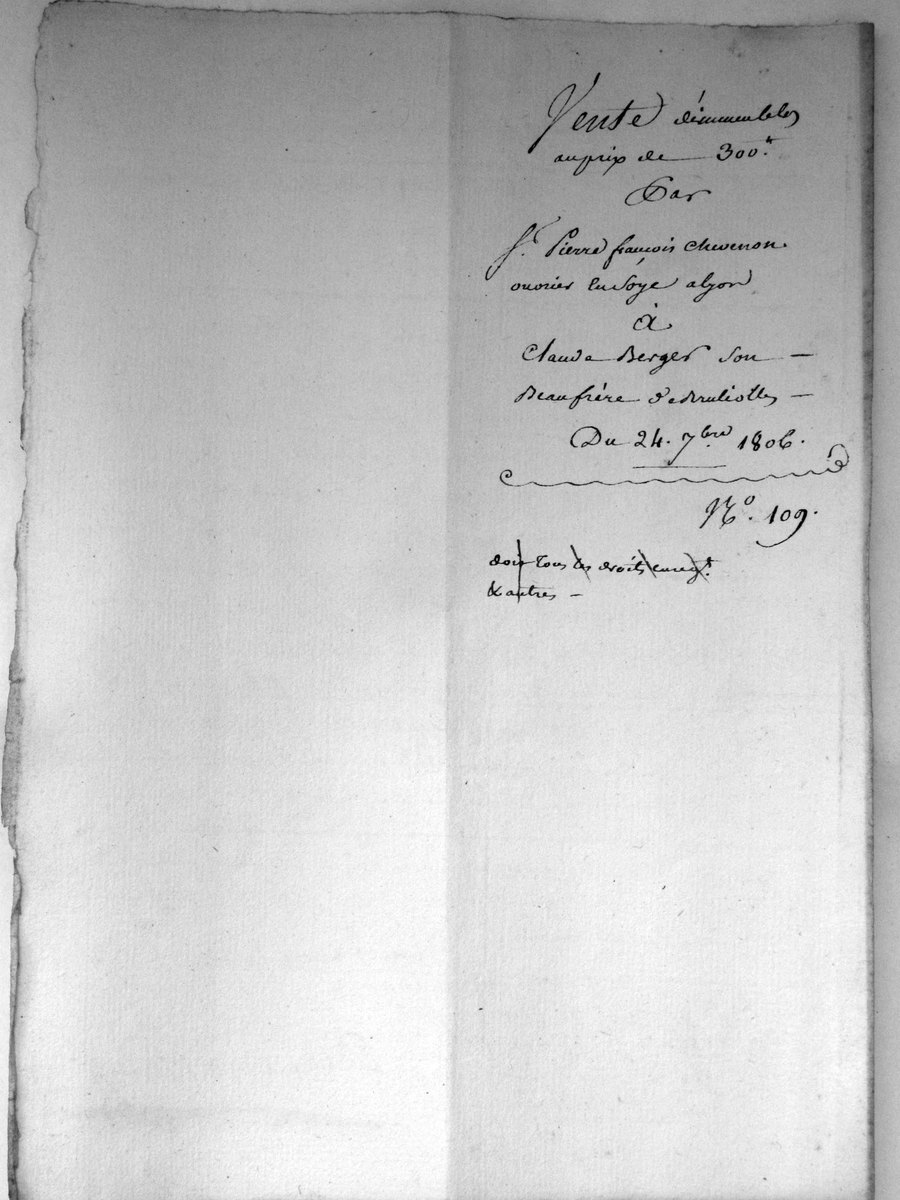 Vente d'immeubles
au prix de 300.#
Par
Sr. Pierre françois Chevenon
ouvrier en Soye a lyon
à
Claude Berger Son —
Beaufrère de —
Du 24. 7bre 1806.
No. 109.
doit tous les droits enregt.
& autres —